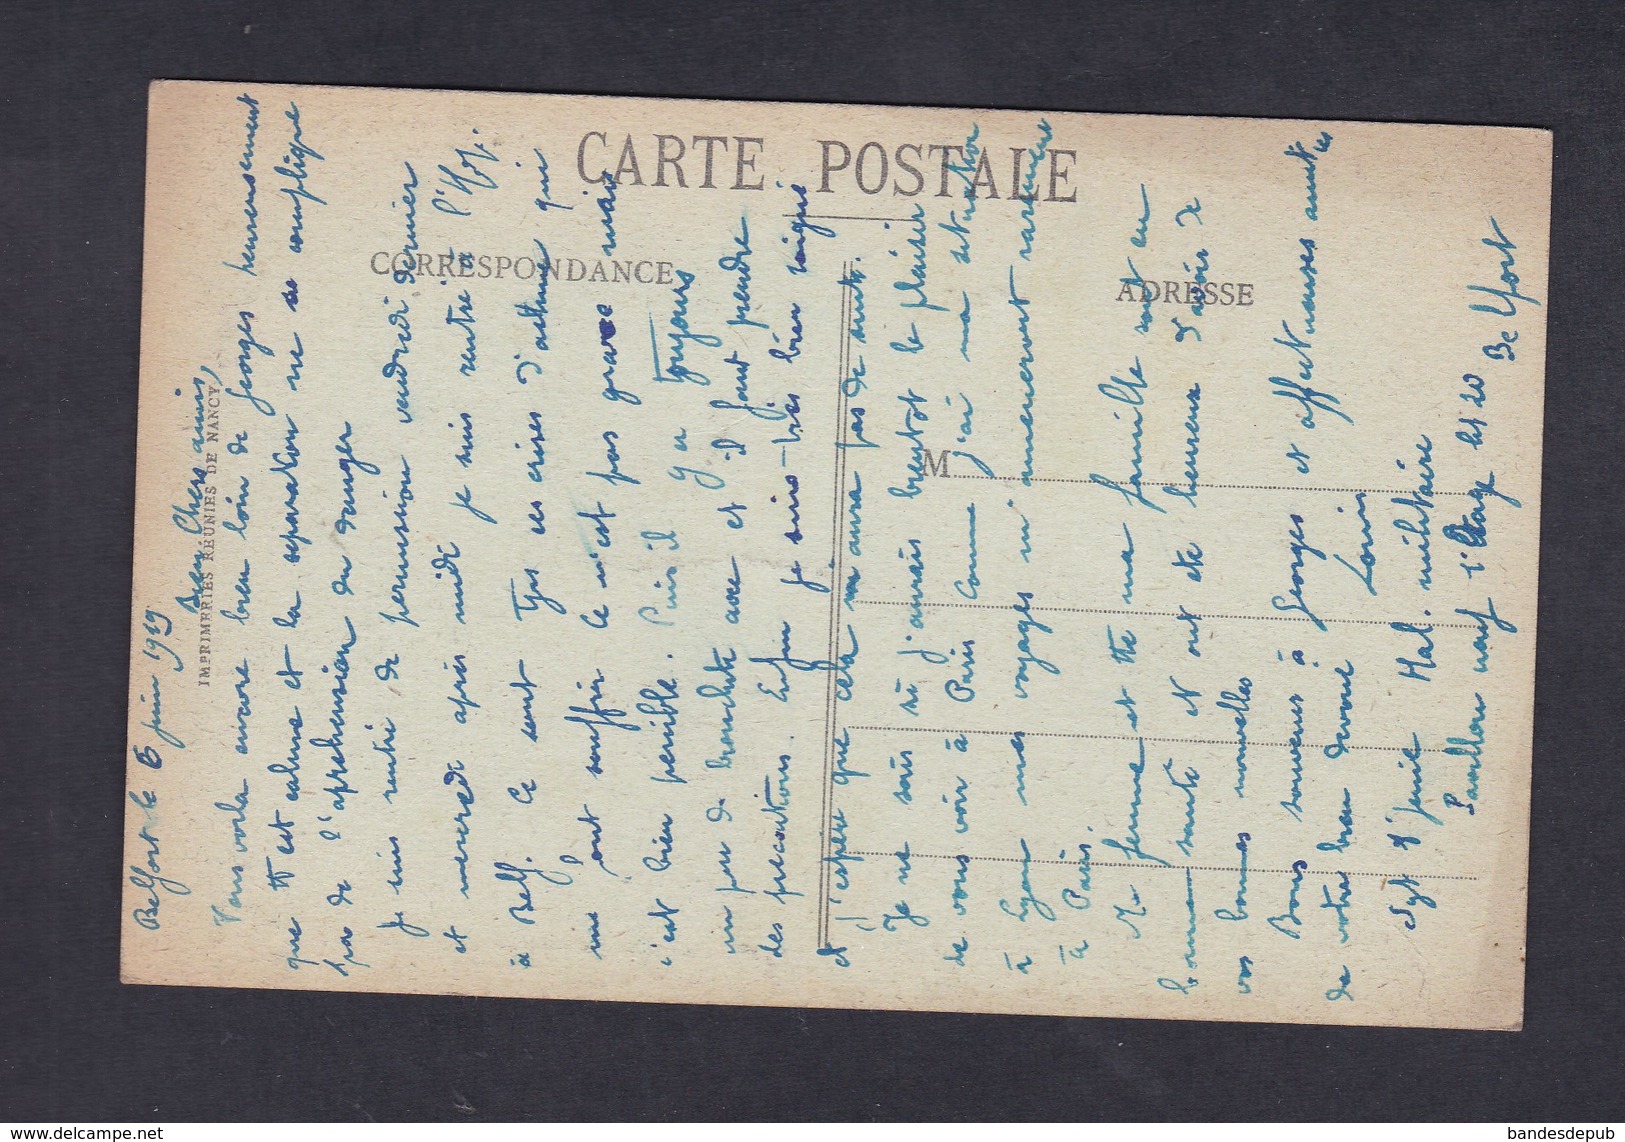 CARTE POSTALE
CORRESPONDANCE
ADRESSE
M
IMPRIMERIES RÉUNIES DE NANCY
Belfort le 6 juin 1919
Bien Chers amis,
Vous voila encore bien loin de Georges heureusement
que tt est calme et la separation ne se complique
pas de l'aprehension du danger
Je suis rentré de permission vendredi dernier
et mercredi après midi je suis rentré à l'
à Belf. Ce sont tjrs ces crises d'asthme qui
me font souffrir ce n'est pas grave mais
c'est bien penible. Puis il y a toujours
un peu de bronchite avec et il faut prendre
des precautions. Enfin je suis très bien soigné
et j'espère que cela n'aura pas de suite.
Je ne sais si j'aurais bientot le plaisir
de vous voir à Paris Comme j'ai ma situation
à Lyon mes voyages m'ameneront rarement
à Paris
Ma femme et tte ma famille sont en
bonne santé et ont ete heureux d'avoir de
vos bonnes nouvelles
Bons souvenirs à Georges et affectueuses amitiés
de votre bien devoué Louis
Sgt 8e Genie Hal. militaire
Pavillon neuf 1e Etage lit 20 Belfort
bandesdepub-delcampe.net
bandesdepub